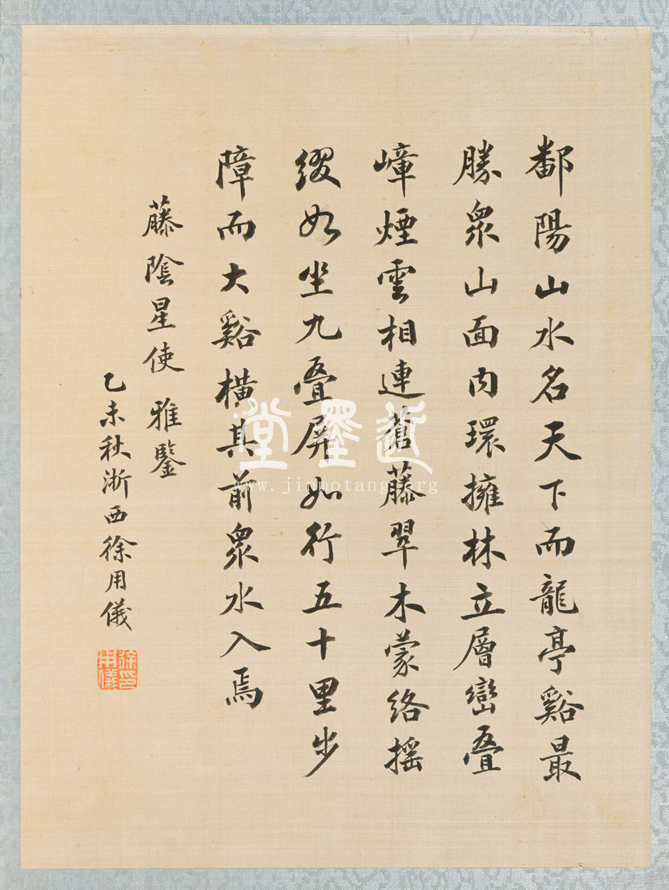 鄱陽山水名天下而龍亭谿最
勝衆山面内環擁林立層巒疊
嶂煙雲相連蒼藤翠木蒙络摇
缀如坐九疊屏如行五十里步
障而大谿横其前衆水入焉
藤陰星使雅鑒
乙未秋浙西徐用儀
徐用儀印
近墨堂
www.jinmotang.org